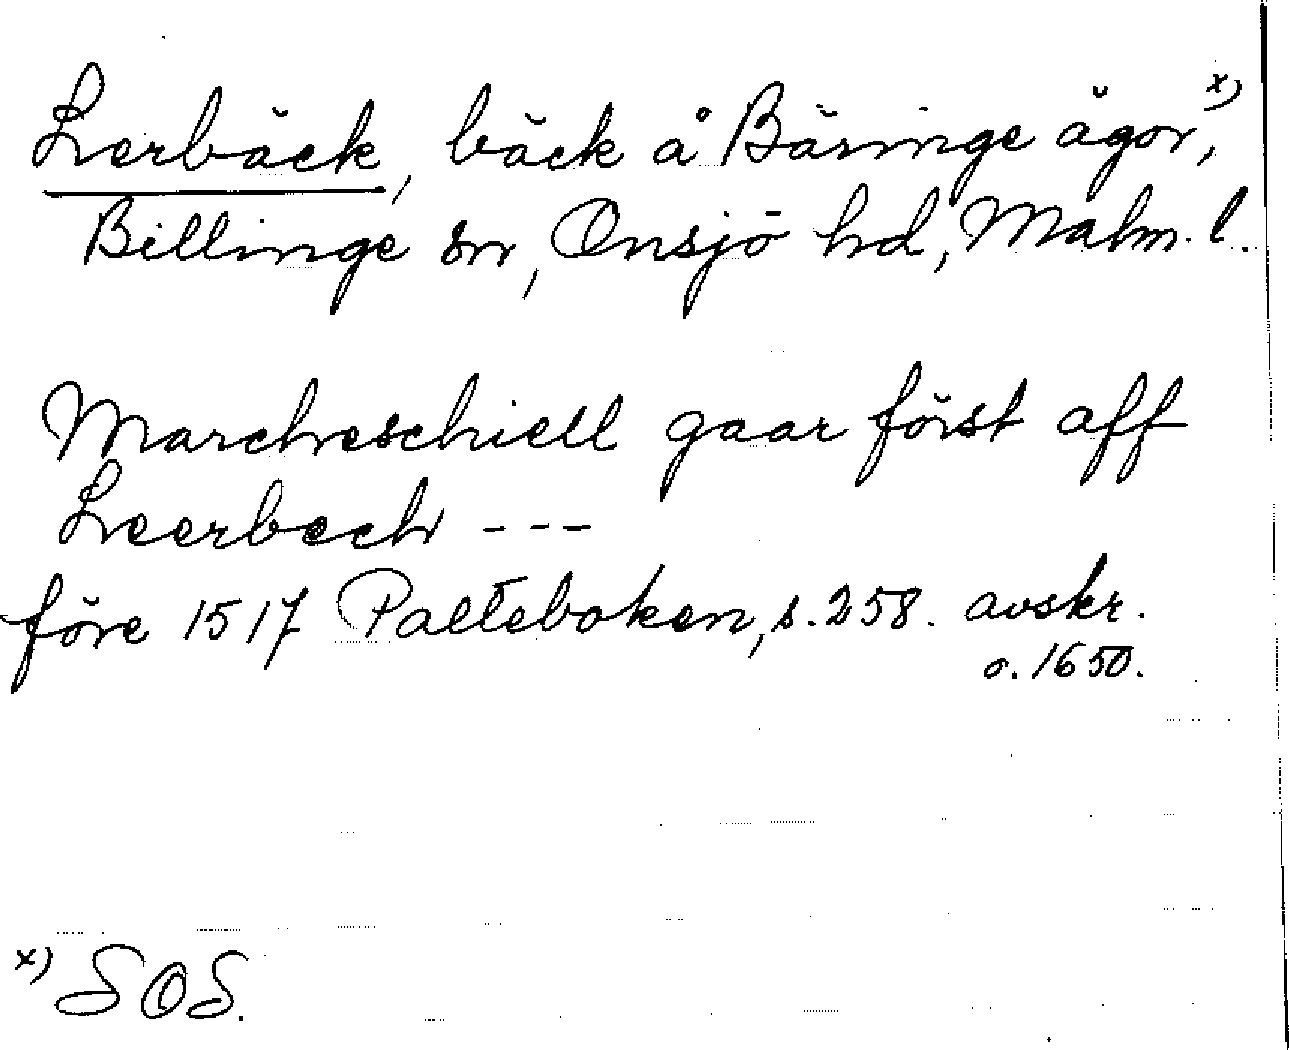 Lerbäck, bäck å Bäringe ägor,x)
Billinge sn, Onsjö hd, Malm. l.
Marcheschiell gaar först aff
Leerbech ---
före 1517 Palteboken, s. 258. avskr.
o. 1650.
x) SOS.